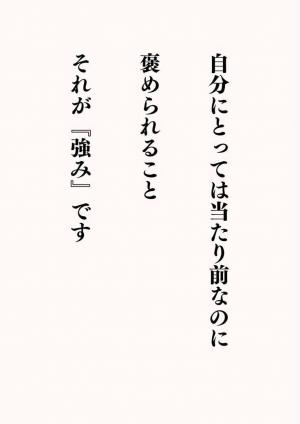 自分にとっては当たり前なのに
褒められること
それが『強み』です